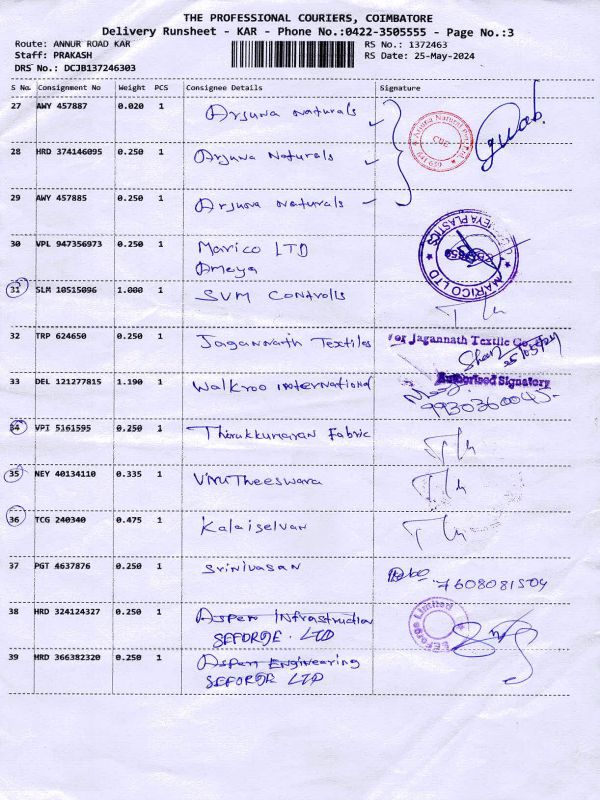 THE PROFESSIONAL COURIERS, COIMBATORE
Delivery Runsheet - KAR - Phone No.:0422-3505555 - Page No.:3
Route: ANNUR ROAD KAR RS No.: 1372463
Staff: PRAKASH RS Date: 25-May-2024
DRS No.: DCJB137246303
S No. Consignment No Weight PCS Consignee Details Signature
27 AWY 457887 0.020 1 Arjuna Naturals
28 HRD 374146095 0.250 1 Arjuna Naturals
29 AWY 457885 0.250 1 Arjuna Naturals
30 VPL 947356973 0.250 1 Marico LTD
Ameya
MARICO LTD
31 SLM 10515096 1.000 1 SVM Controlls
32 TRP 624650 0.250 1 Jagannath Textiles
For Jagannath Textile Co
25/05/24
Authorised Signatory
33 DEL 121277815 1.190 1 Walkroo International
9930360045
34 VPI 5161595 0.250 1 Thirukkumaran Fabric
35 NEY 40134110 0.335 1 ViruTheeswara
36 TCG 240340 0.475 1 Kalaiselvan
37 PGT 4637876 0.250 1 Srinivasan
7608081504
38 HRD 324124327 0.250 1 Aspen Infrastruction
SEFORGE. LTD
SEForge Limited
39 HRD 366382320 0.250 1 Aspen Engineering
SEFORGE LTD